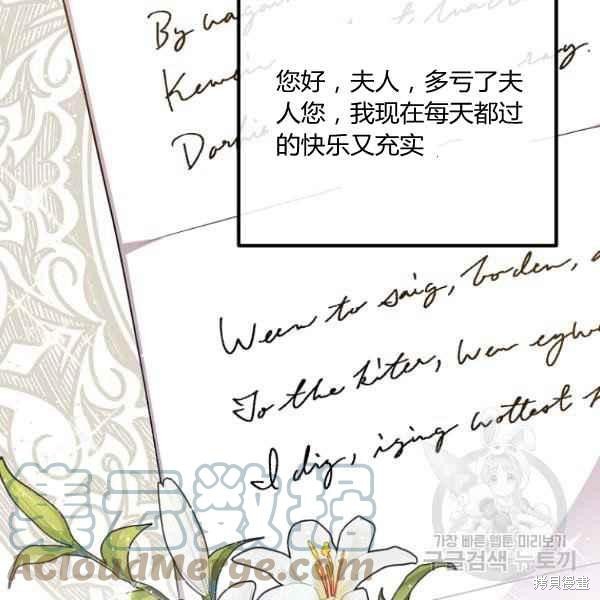 By
您好，夫人，多亏了夫
人您，我现在每天都过
的快乐又充实
Ween to saig, borden,
To the kiter, wen
I dig, iging wottest
集云数据
aCloudMerge.com
가장 빠른 웹툰 미리보기
구글검색 뉴토끼
拷貝漫畫